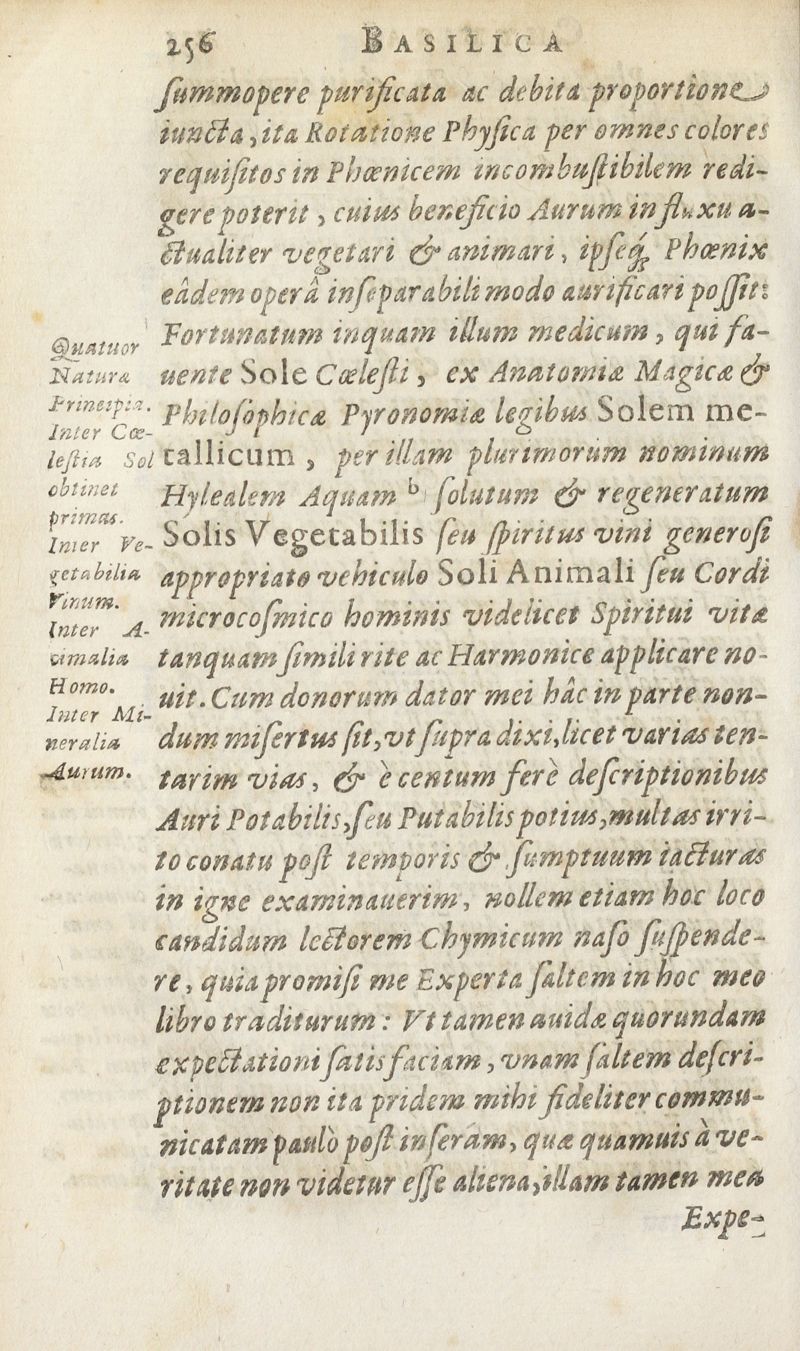 256 BASILICA
ſummopere purificata ac debita proportione
iuncta, ita Rotatione Phyſica per omnes colores
requiſitos in Phœnicem incombuſtibilem redi-
gere poterit, cuius beneficio Aurum influxu a-
ctualiter vegetari & animari, ipſeq́; Phœnix
eâdem operâ inſeparabili modo aurificari poſſit:
Fortunatum inquam illum medicum, qui fa-
uente Sole Cœleſti, ex Anatomiæ Magicæ &
Philoſophicæ Pyronomiæ legibus Solem me-
tallicum, per illam plurimorum nominum
Hylealem Aquam b ſolutum & regeneratum
Solis Vegetabilis ſeu ſpiritus vini generoſi
appropriato vehiculo Soli Animali ſeu Cordi
microcoſmico hominis videlicet Spiritui vitæ
tanquam ſimili rite ac Harmonice applicare no-
uit. Cum donorum dator mei hâc in parte non-
dum miſertus ſit, vt ſupra dixi, licet varias ten-
tarim vias, & è centum ferè deſcriptionibus
Auri Potabilis, ſeu Putabilis potius, multas irri-
to conatu poſt temporis & ſumptuum iacturas
in igne examinauerim, nollem etiam hoc loco
candidum lectorem Chymicum naſo ſuſpende-
re, quia promiſi me Experta ſaltem in hoc meo
libro traditurum: Vt tamen auidæ quorundam
expectationi ſatisfaciam, vnam ſaltem deſcri-
ptionem non ita pridem mihi fideliter commu-
nicatam paulò poſt inſeram, quæ quamuis à ve-
ritate non videtur eſſe aliena, illam tamen mea
Expe-
Quatuor
Naturæ
Principia.
Inter Cœ-
leſtia Sol
obtinet
primas.
Inter Ve-
getabilia
Vinum.
Inter A-
nimalia
Homo.
Inter Mi-
neralia
Aurum.